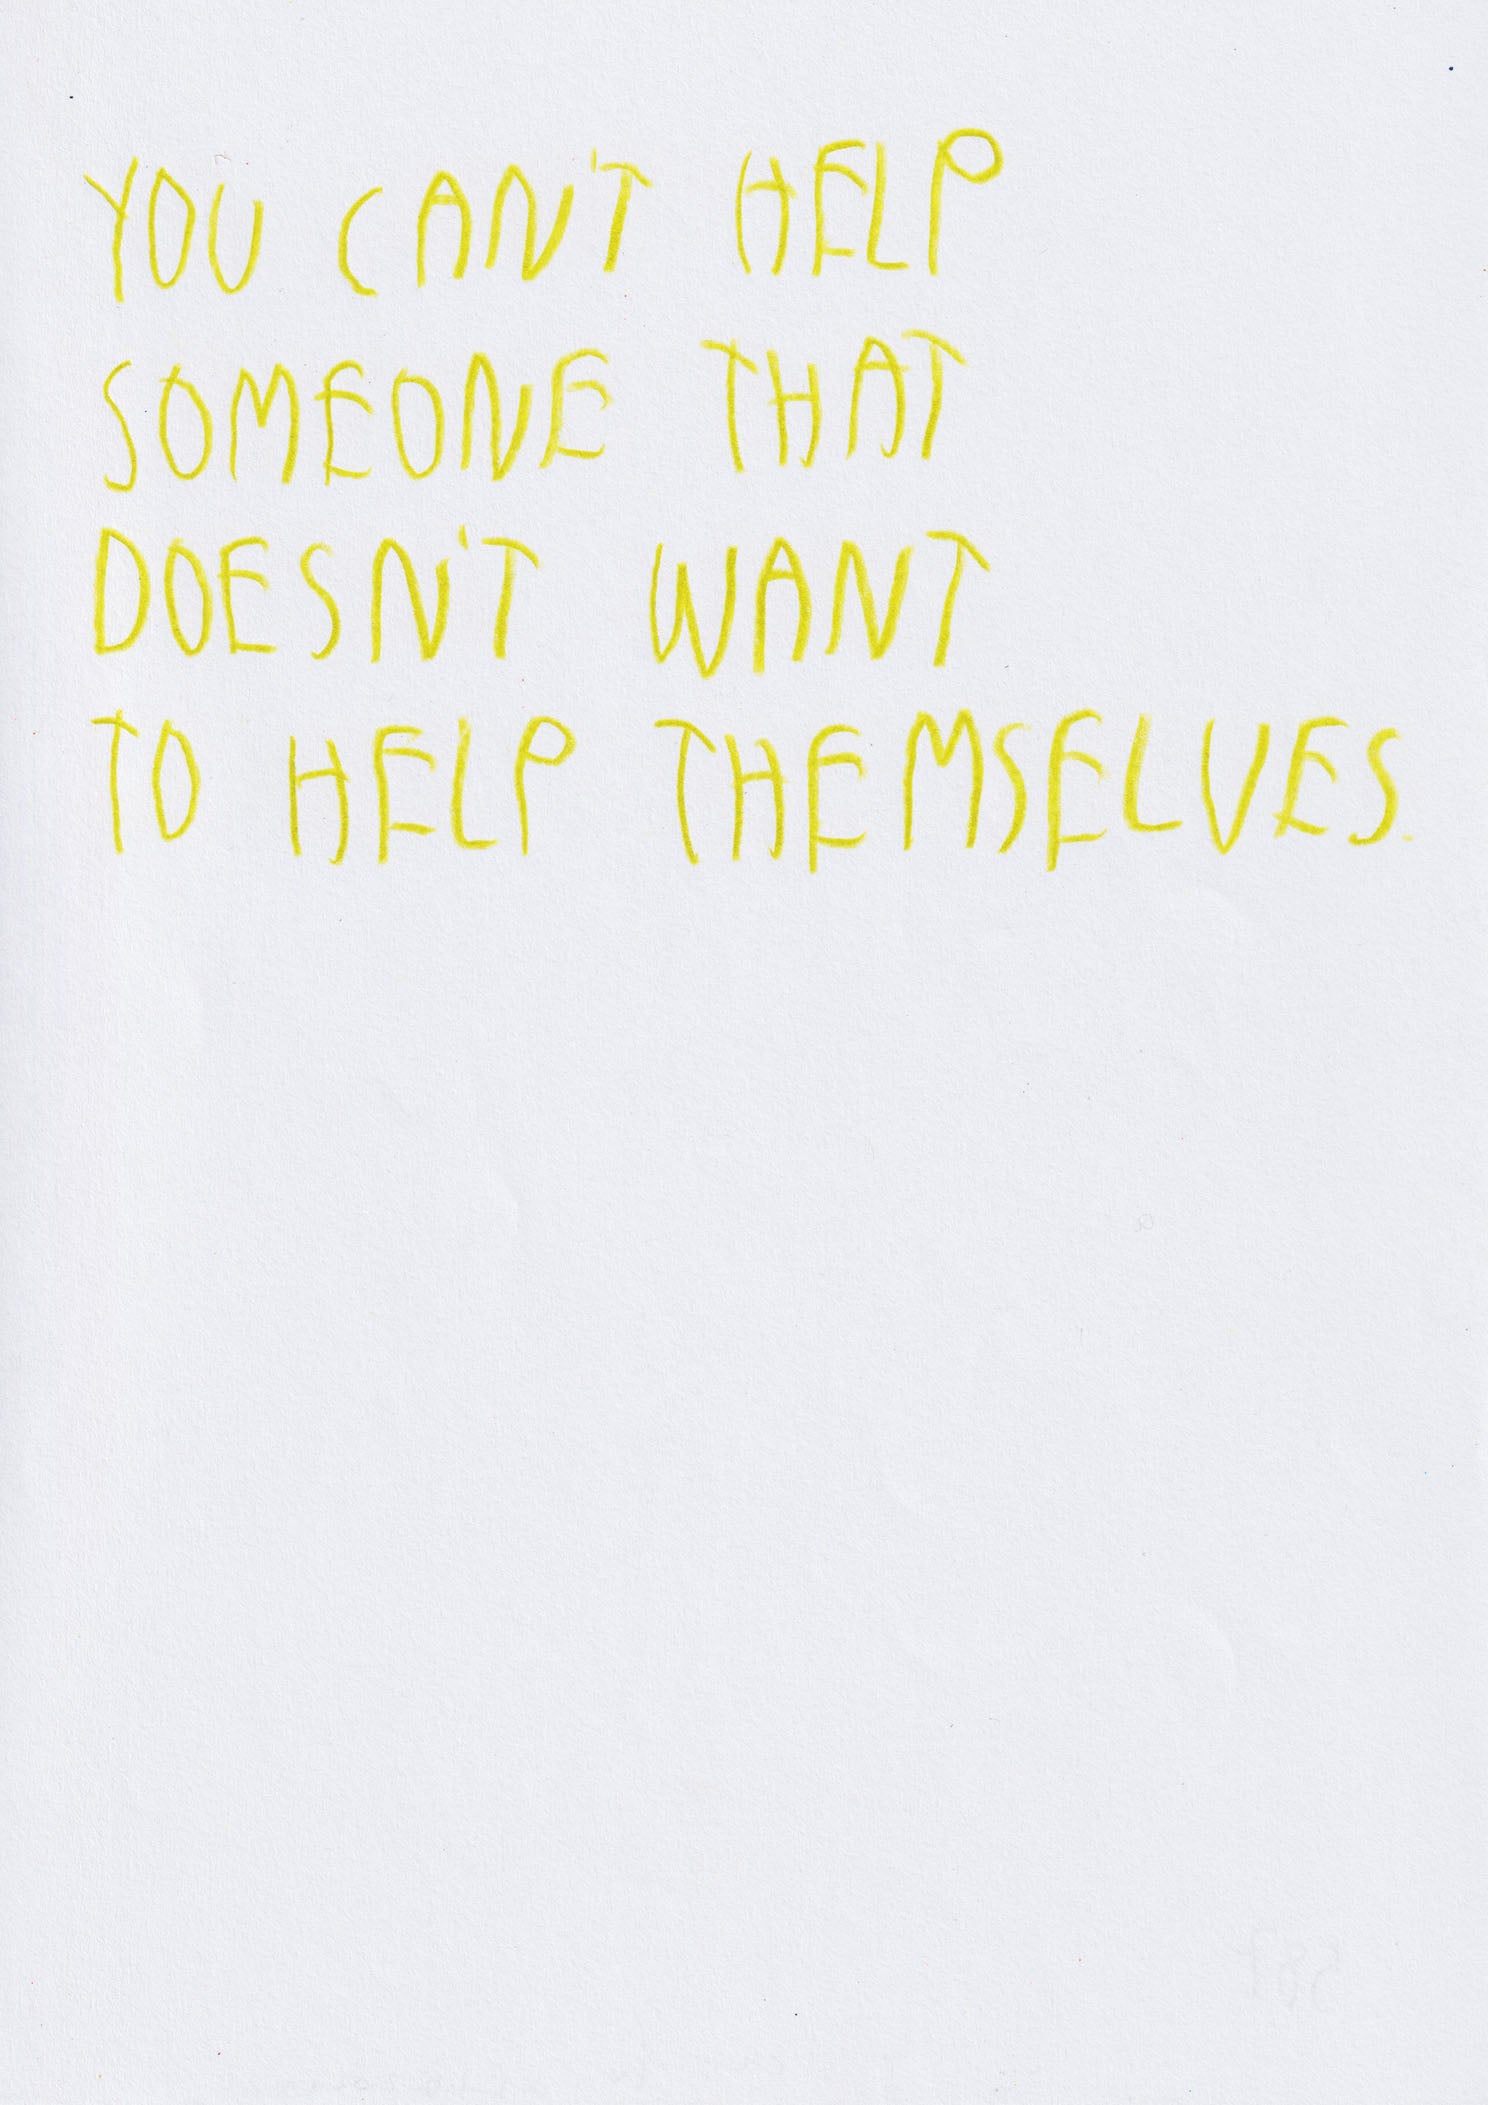 YOU CAN'T HELP
SOMEONE THAT
DOESN'T WANT
TO HELP THEMSELVES.